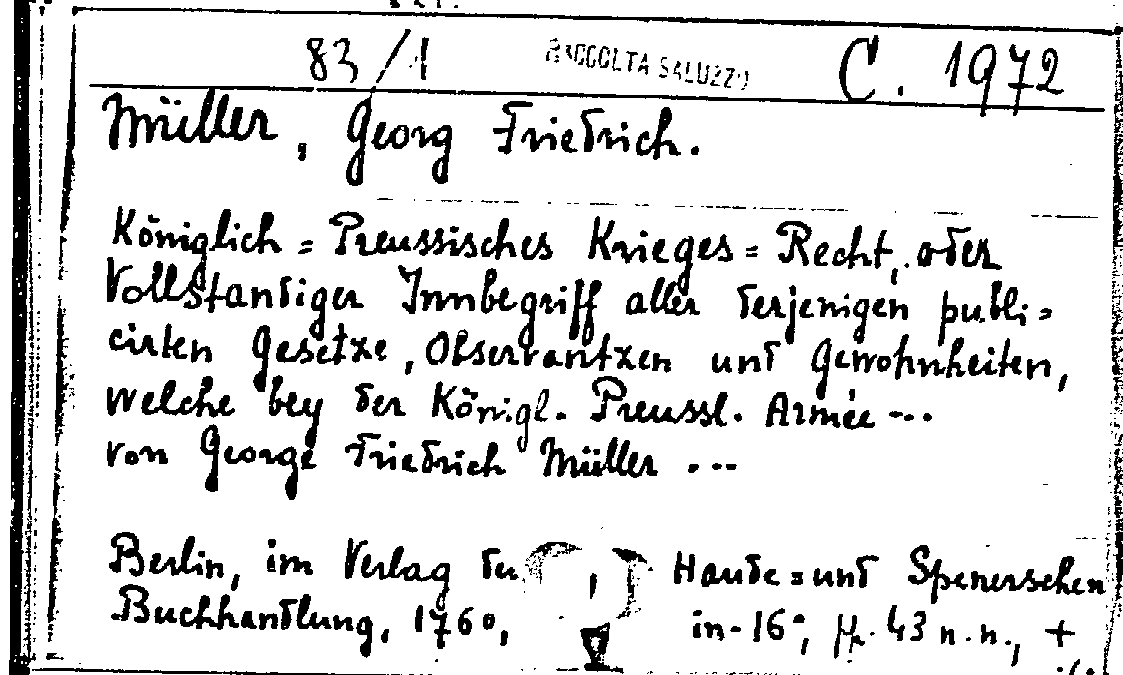 83/1 RACCOLTA SALUZZO C. 1972
Müller, Georg Friedrich.
Königlich = Preussisches Krieges = Recht, oder
Vollständiger Innbegriff aller derjenigen publi=
cirten Gesetze, Observantzen und Gewohnheiten,
welche bey der Königl. Preussl. Armée ...
von George Friedrich Müller ...
Berlin, im Verlag de Haude = und Spenerschen
Buchhandlung, 1760, in-16°, pp. 43 n.n., +